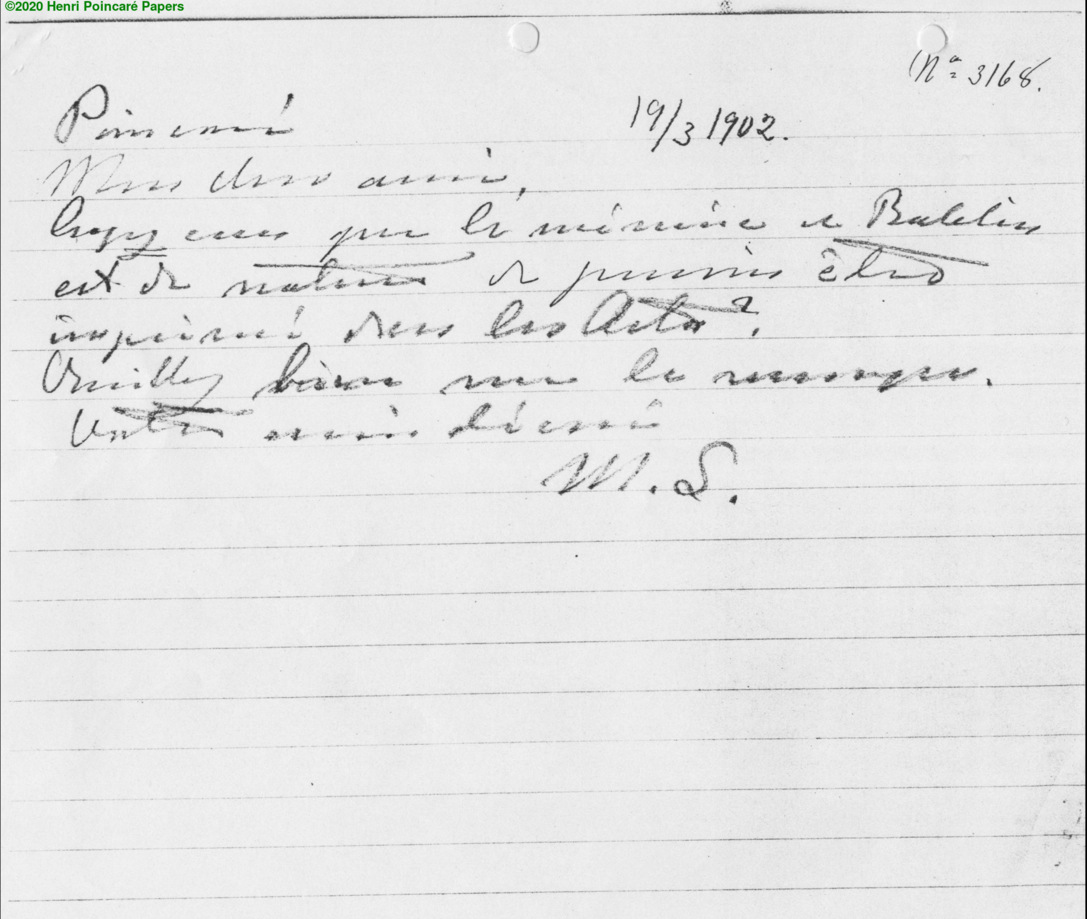 ©2020 Henri Poincaré Papers
No 3168.
Poincaré
19/3 1902.
Mon cher ami,
Croyez vous que le mémoire de
est de nature de pouvoir être
imprimé dans les Acta?
Veuillez bien me le renvoyer.
Votre ami dévoué
M. L.